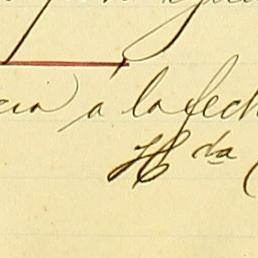 cia á la fech
Hda (